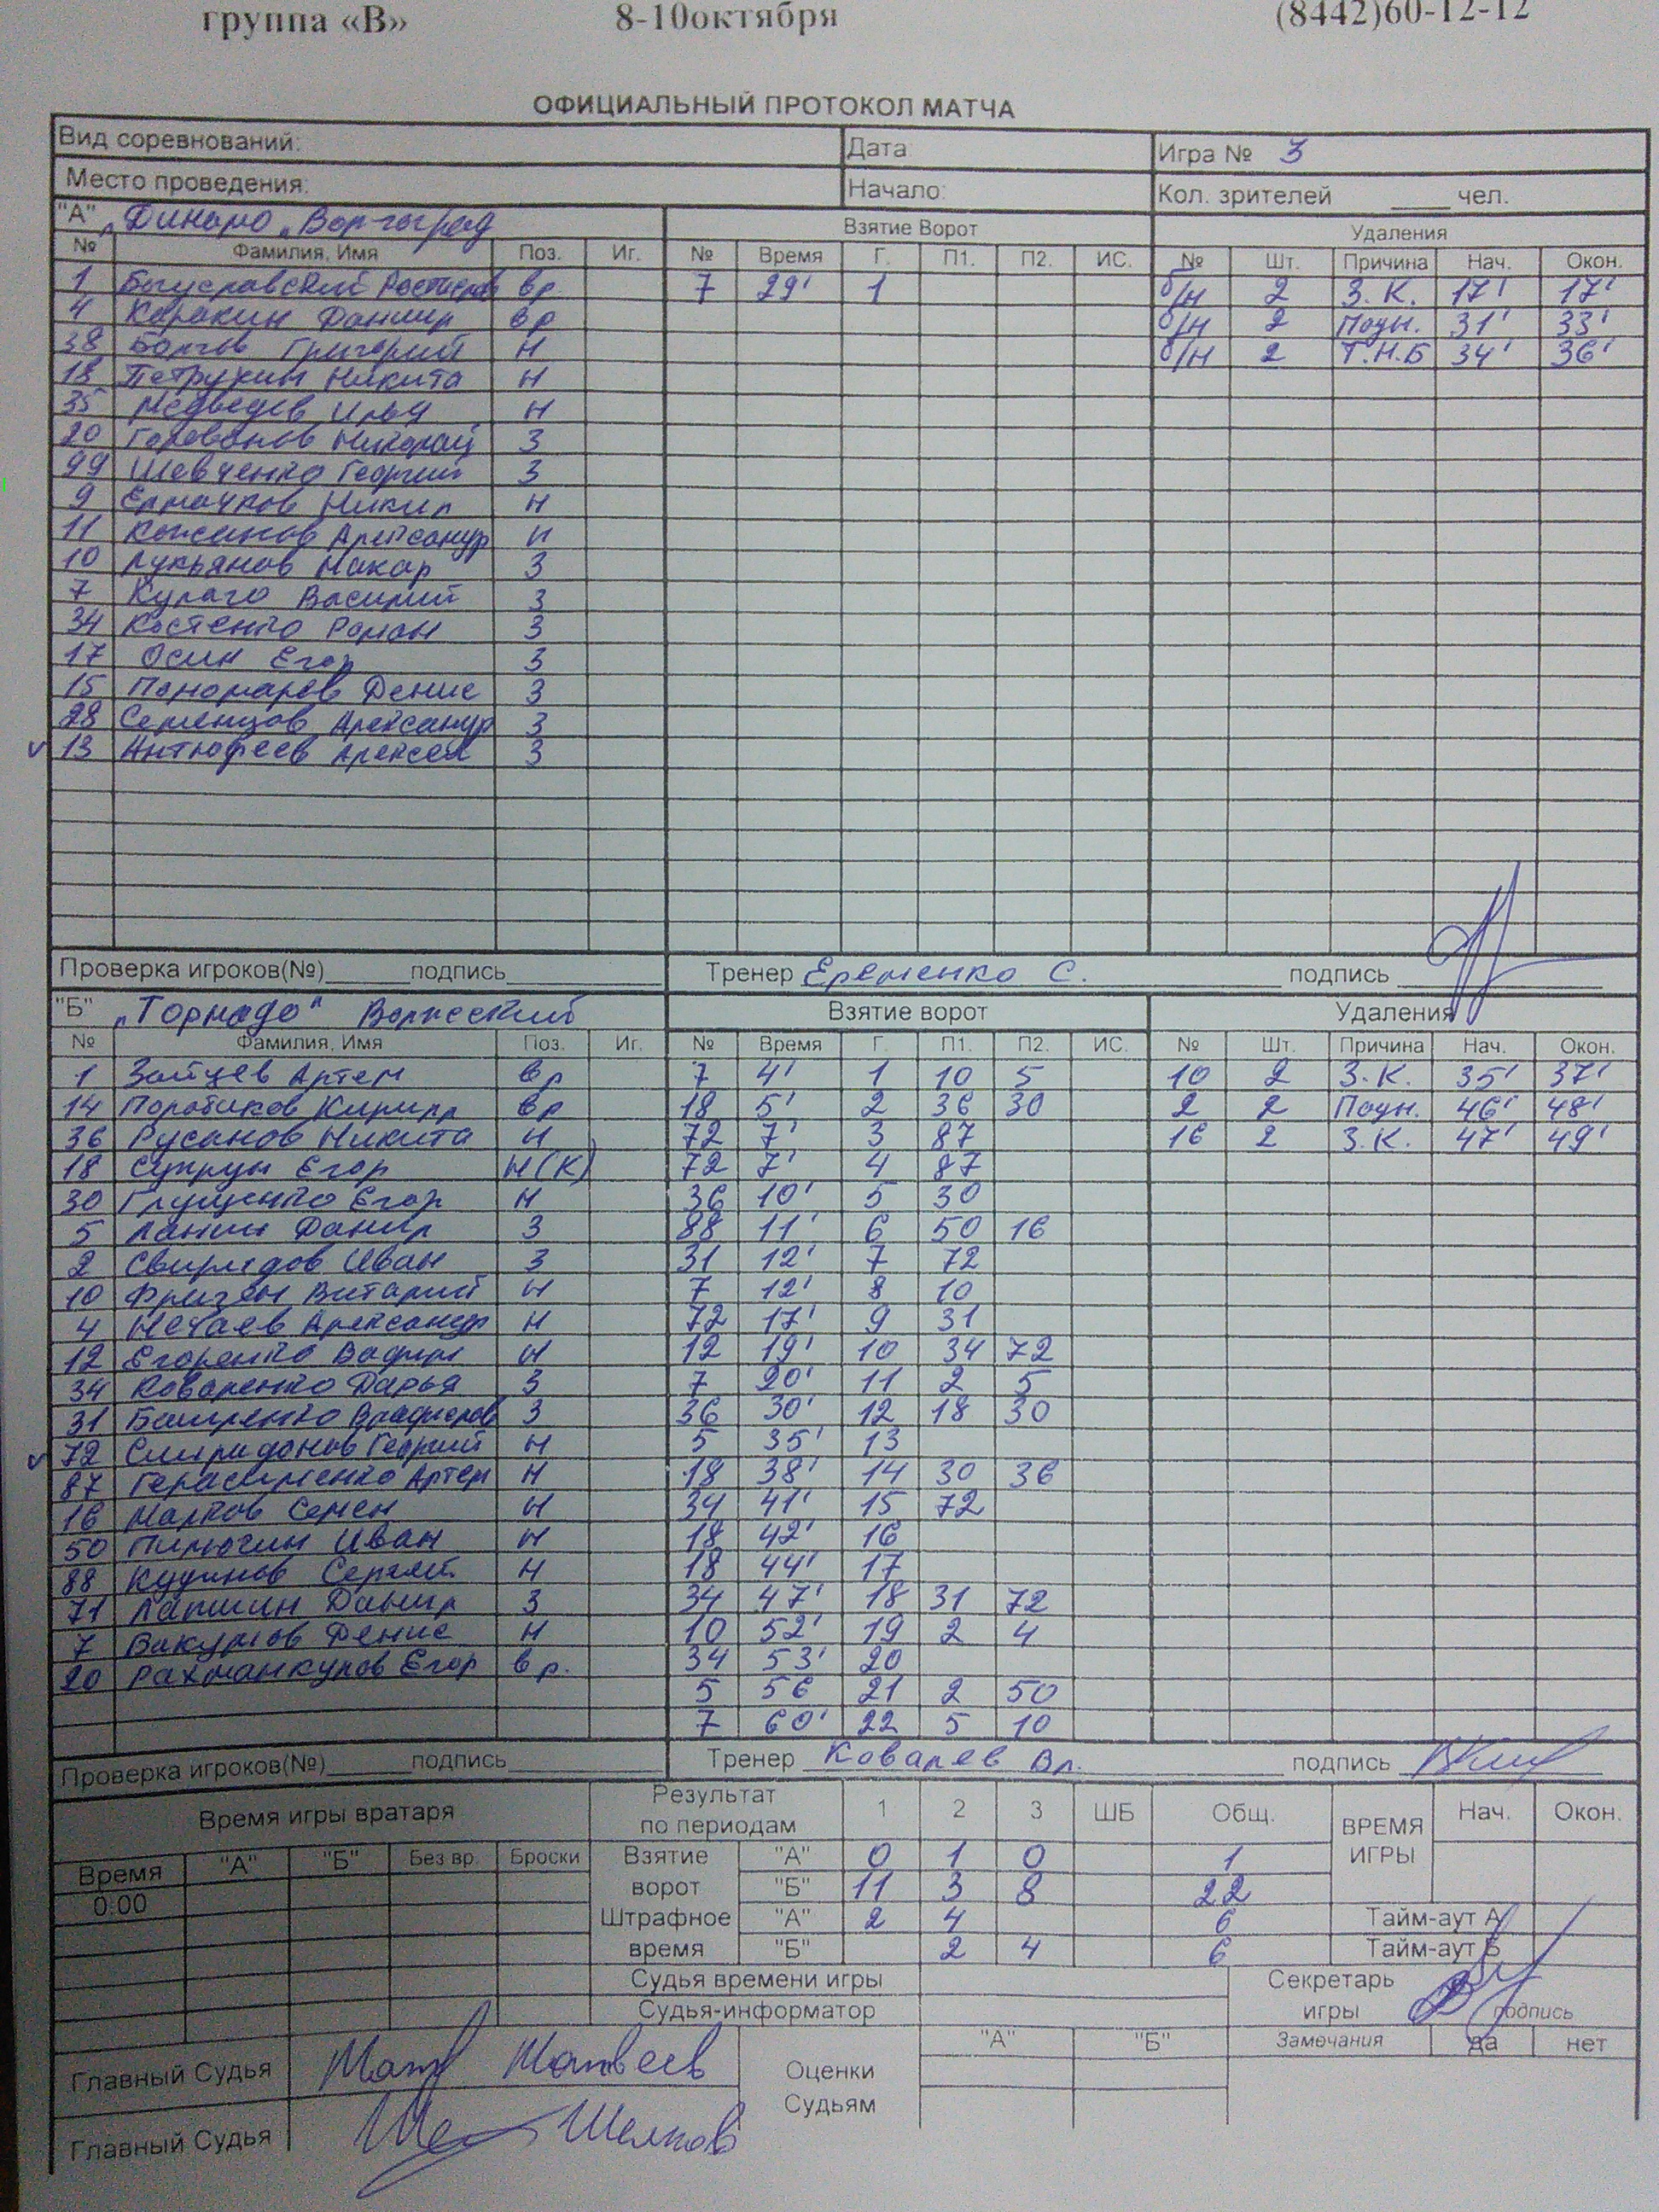 группа «В» 8-10октября (8442)60-12-12
ОФИЦИАЛЬНЫЙ ПРОТОКОЛ МАТЧА
Вид соревнований: Дата: Игра № 3
Место проведения: Начало: Кол. зрителей ____ чел.
"А" „Динамо„ Волгоград Взятие Ворот Удаления
№ Фамилия, Имя Поз. Иг. № Время Г. П1. П2. ИС. № Шт. Причина Нач. Окон.
1 Богуславский Ростислав вр 7 29' 1 б/н 2 З.К. 17' 17'
4 Каракин Даниил вр б/н 2 Подн. 31' 33'
38 Болгов Григорий Н б/н 2 Т.Н.Б 34' 36'
18 Петрухин Никита Н
35 Медведев Илья Н
20 Голованов Николай З
99 Шевченко Георгий З
9 Ермачков Никил Н
11 Кожанов Александр Н
10 Лукьянов Макар З
7 Кулаго Василий З
34 Костенко Роман З
17 Осин Егор З
15 Пономарев Денис З
28 Семенцов Александр З
13 Антюфеев Алексей З
Проверка игроков(№)______подпись__________ Тренер Еременко С. подпись
"Б" „Торнадо" Волжский Взятие ворот Удаления
№ Фамилия, Имя Поз. Иг. № Время Г. П1. П2. ИС. № Шт. Причина Нач. Окон.
1 Зайцев Артем вр 7 4' 1 10 5 10 2 З.К. 35' 37'
14 Кирилл вр 18 5' 2 36 30 2 2 Подн. 46' 48'
36 Русанов Никита Н 72 7' 3 87 16 2 З.К. 47' 49'
18 Супрун Егор Н(К) 72 7' 4 87
30 Грущенко Егор Н 36 10' 5 30
5 Ланин Данил З 88 11' 6 50 16
2 Свиридов Иван З 31 12' 7 72
10 Фризен Виталий Н 7 12' 8 10
4 Нечаев Александр Н 72 17' 9 31
12 Егоренко Вадим Н 12 19' 10 34 72
34 Коваленко Дарья З 7 20' 11 2 5
31 З 36 30' 12 18 30
72 Спиридонов Георгий Н 5 35' 13
87 Герасименко Артем Н 18 38' 14 30 36
16 Марков Семен Н 34 41' 15 72
50 Пилюгин Иван Н 18 42' 16
88 Кудинов Сергей Н 18 44' 17
71 Лапшин Данил З 34 47' 18 31 72
7 Вакулов Денис Н 10 52' 19 2 4
20 Рахманкулов Егор вр. 34 53' 20
5 56 21 2 50
7 60' 22 5 10
Проверка игроков(№)______подпись__________ Тренер Ковалев Вл. подпись
Время игры вратаря Результат по периодам 1 2 3 ШБ Общ. ВРЕМЯ ИГРЫ Нач. Окон.
Время "А" "Б" Без вр. Броски Взятие "А" 0 1 0 1
0:00 ворот "Б" 11 3 8 22
Штрафное "А" 2 4 6 Тайм-аут А
время "Б" 2 4 6 Тайм-аут Б
Судья времени игры Секретарь
Судья-информатор игры подпись
"А" "Б" Замечания да нет
Главный Судья Матвеев Оценки
Судьям
Главный Судья Шелков